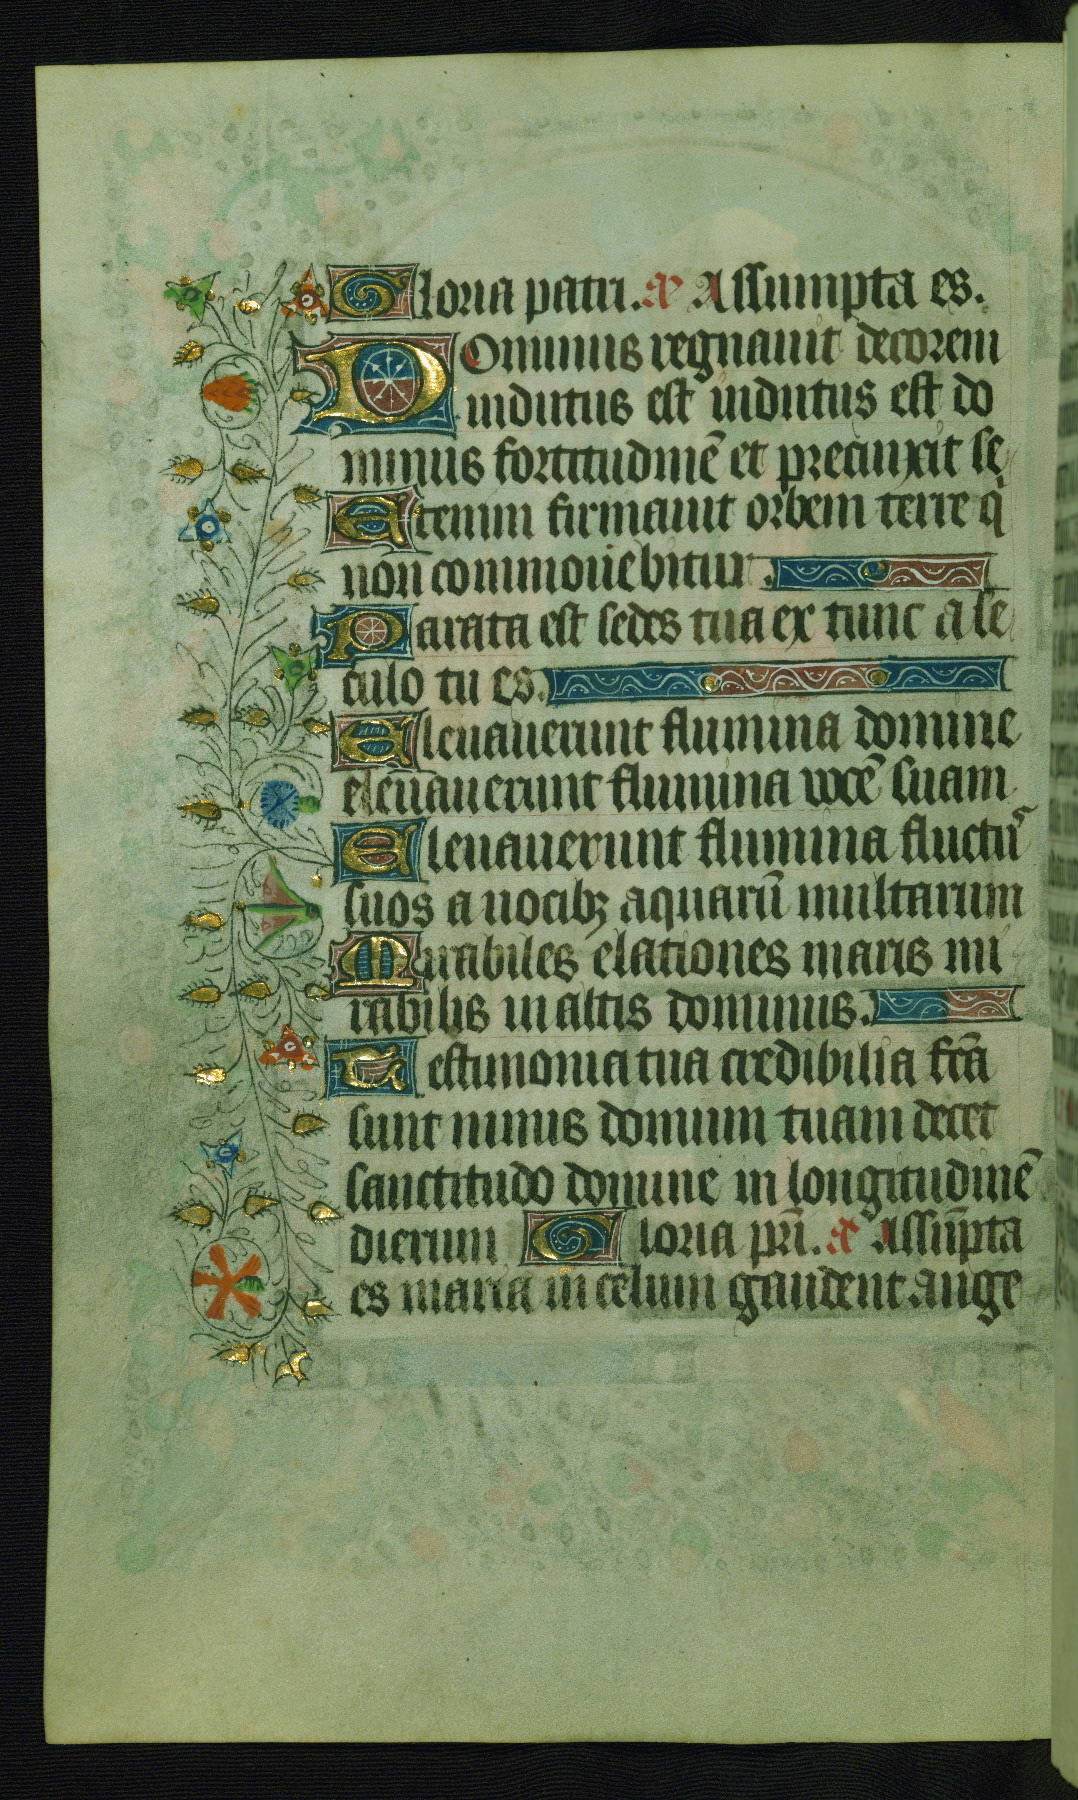 Gloria patri. a᷒ Assumpta es.
Dominus regnauit decorem
indutus est indutus est do
minus fortitudinē et precinxit se
Etenim firmauit orbem terre q̇
non commouebitur.
Parata est sedes tua ex tunc a se
culo tu es.
Eleuauerunt flumina domine
eleuauerunt flumina uocē suam
Eleuauerunt flumina fluctū
suos a uocibꝫ aquarū multarum
Mirabiles elationes maris mi
rabilis in altis dominus.
Testimonia tua credibilia fc̄a
sunt nimis domum tuam decet
sanctitudo domine in longitudinē
dierum Gloria pr̄i. a᷒ Assūpta
es maria in celum gaudent ange